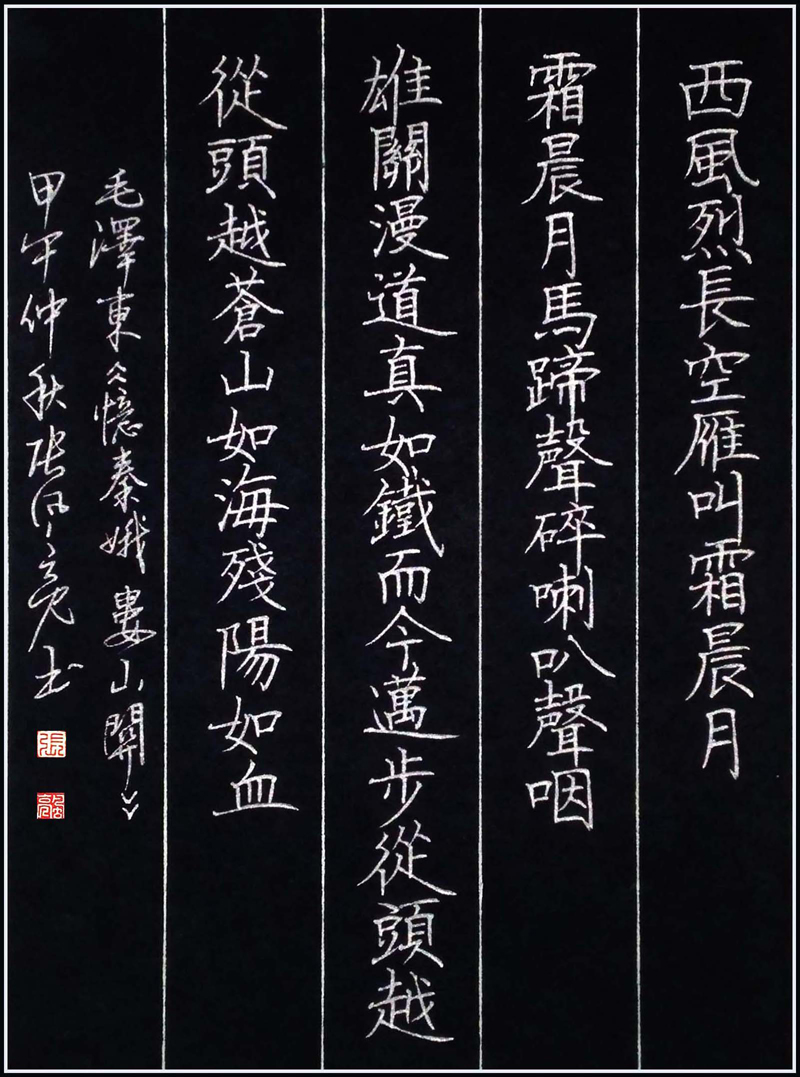 西風烈長空雁叫霜晨月
霜晨月馬蹄聲碎喇叭聲咽
雄關漫道真如鐵而今邁步從頭越
從頭越蒼山如海殘陽如血
毛澤東《憶秦娥婁山關》
甲午仲秋張亮书
張